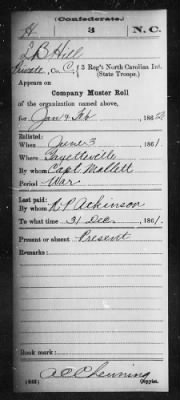 (Confederate.)
H 3 N.C.
L B Hill
Private, Co. C, 3 Reg't North Carolina Inf.
(State Troops.)
Appears on
Company Muster Roll
of the organization named above,
for Jan & Feb, 1862.
Enlisted:
When June 3, 1861.
Where Fayetteville
By whom Capt Mallett
Period War
Last paid:
By whom A P Atkinson
To what time 31 Dec, 1861.
Present or absent Present
Remarks:
Book mark:
A C Chenning
(642) Copyist.